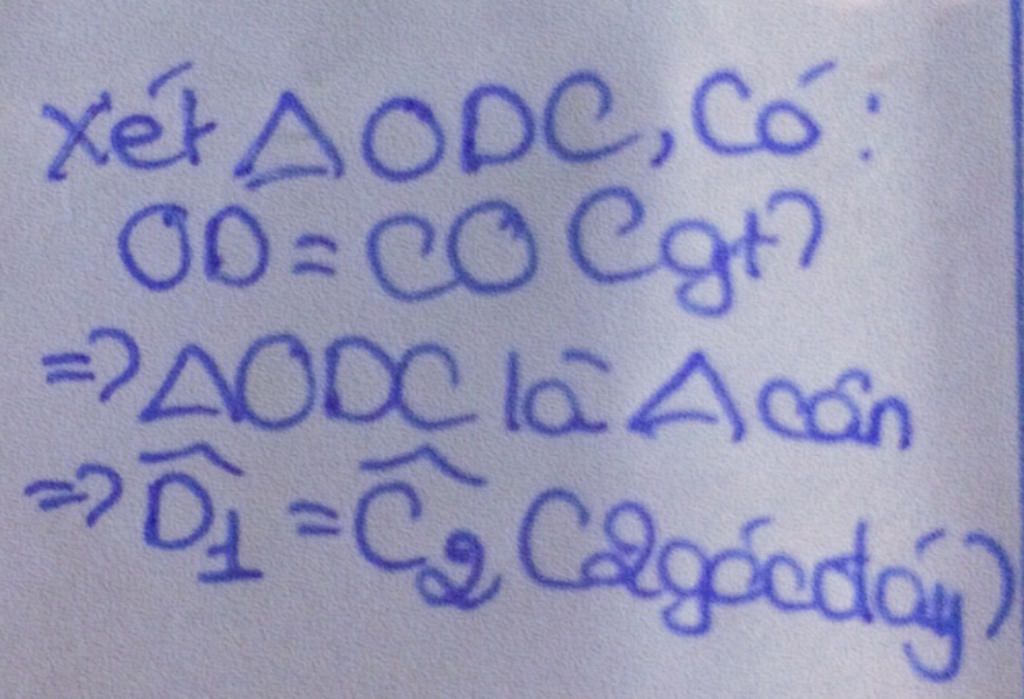 Xét △ODC, Có:
OD = CO (gt)
=> △ODC là △ cân
=> D̂₁ = Ĉ₂ (2 góc đáy)